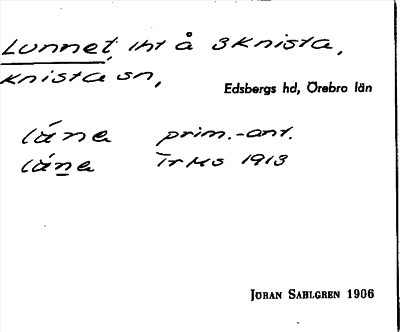 Lunnet, lht å 3 Knista,
Knista sn,
Edsbergs hd, Örebro län
lá̄na prim.-ant.
lá̄na IrKS 1913
JÖRAN SAHLGREN 1906